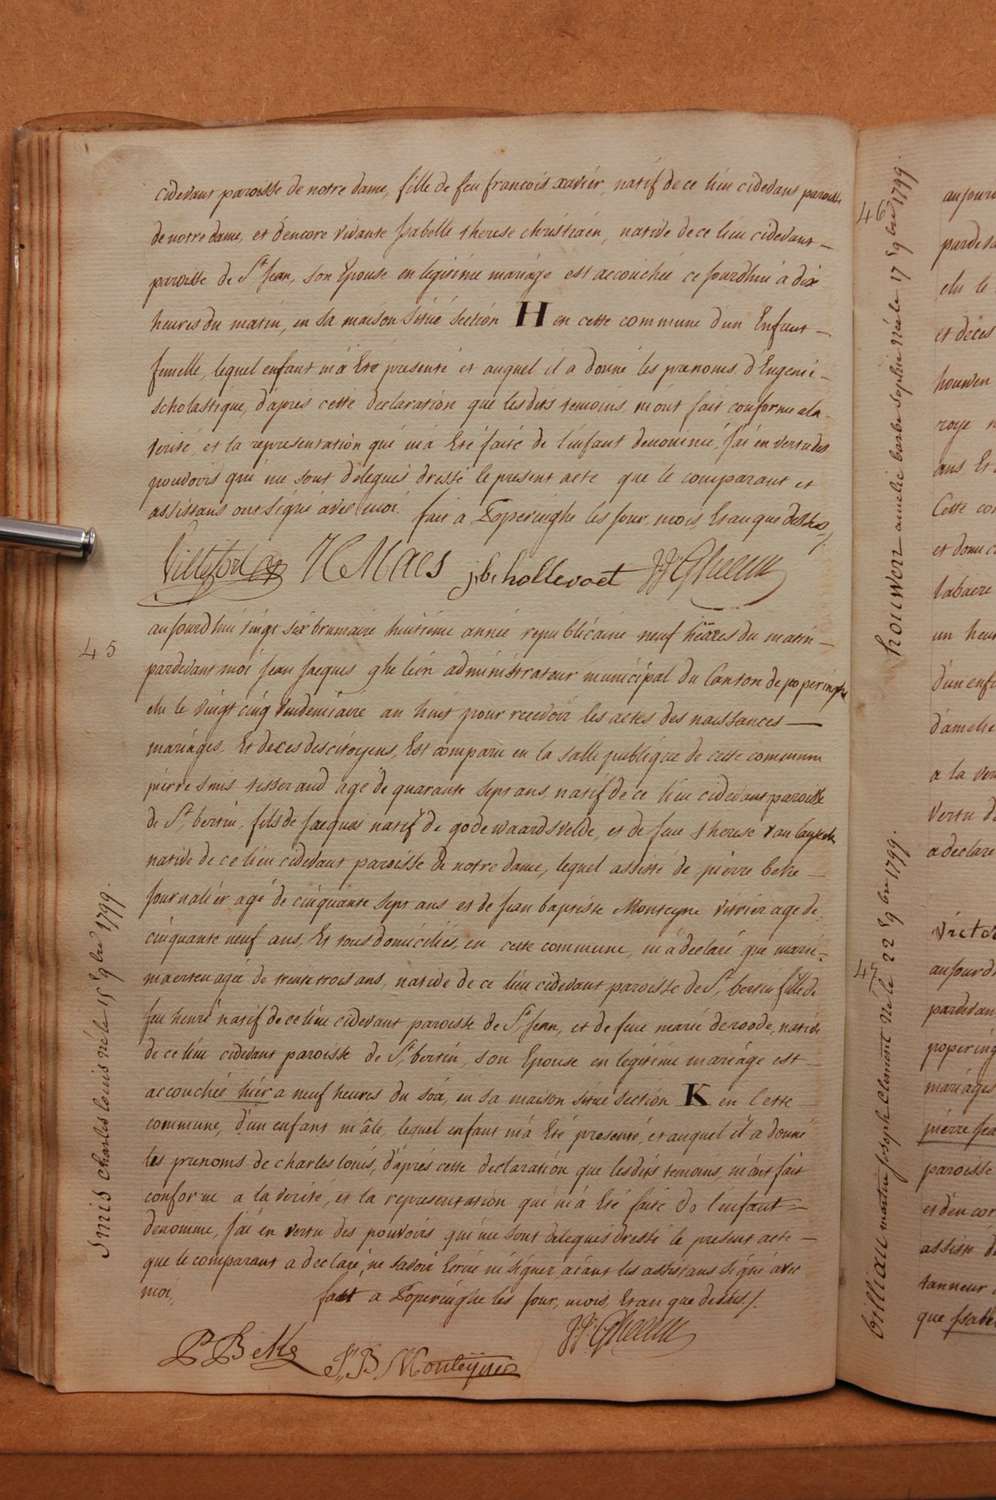 cidevant paroisse de notre dame, fille de feu francois xavier, natif de ce lieu cidevant paroisse
de notre dame, et d'encore vivante Isabelle therese christiaen, native de ce lieu cidevant
paroisse de St. Jean, son Epouse en legitime mariage est accouchée ce jourdhui à dix
heures du matin, en sa maison situé section H en cette commune d'un Enfant
femelle, lequel enfant m'a Eté presenté et auquel il a donné les prenoms d'Eugenie
scholastique, d'apres cette declaration que les dits temoins m'ont fait conforme a la
verité, et la representation qui m'a Eté faite de l'enfant denommé, j'ai en vertu des
pouvoirs qui me sont delegués dressé le present acte que le comparant et
assistans ont signé avec moi. fait a Poperinghe les jour, mois et an que dessus
HC Maes j:b: hollevoet JJ Ghelein
45
aujourdhui vingt six brumaire huitieme année republicaine neuf heures du matin
pardevant moi Jean Jacques ghelein administrateur municipal du Canton de poperinghe
elu le vingt cinq vendemiaire an huit pour recevoir les actes des naissances
mariages, Et deces des citoyens, Est comparu en la salle publique de cette commune
pierre smis tisserand agé de quarante sept ans natif de ce lieu cidevant paroisse
de St. bertin, fils de Jacques natif de godewaardsvelde, et de feue therese van
native de ce lieu cidevant paroisse de notre dame, lequel assisté de pierre beke
journalier agé de cinquante sept ans et de Jean baptiste Monteyne vitrier agé de
cinquante neuf ans, Et tous domiciliés en cette commune, m'a declaré que marie
maerten agée de trente trois ans, native de ce lieu cidevant paroisse de St. bertin fille de
feu henri natif de ce lieu cidevant paroisse de St. Jean, et de feue marie deroode, native
de ce lieu cidevant paroisse de St. bertin, son Epouse en legitime mariage est
accouchée hier a neuf heures du soir, en sa maison situé section K en cette
commune, d'un enfant mâle, lequel enfant m'a Eté presenté, et auquel il a donné
les prenoms de charles louis, d'après cette declaration que les dits temoins, m'ont fait
conforme a la verité, et la representation qui m'a Eté faite de l'enfant
denommé, j'ai en vertu des pouvoirs qui me sont delegués dressé le present acte
que le comparant a declaré, ne savoir Ecrire ni signer, aiant les assistans signé avec
moi, fait a Poperinghe les jour, mois, Et an que dessus /.
P B eke J, B Monteyne JJ Ghelein
Smis charles louis né le 15 9bre 1799.
46
houwen amelie barbe sophie née le 17 9bre 1799.
47
billiau martin joseph Clement né le 22 9bre 1799.
aujourd
pardeva
elu le
et deces
houwen
roye
ans Et
Cette co
et domi
labaere
un heur
d'un enfa
d'amelie
a la ver
vertu de
a declaré
victor
aujourd
pardevan
popering
mariages
pierre Jea
paroisse
et d'encor
assisté d
tanneur
que Isabe